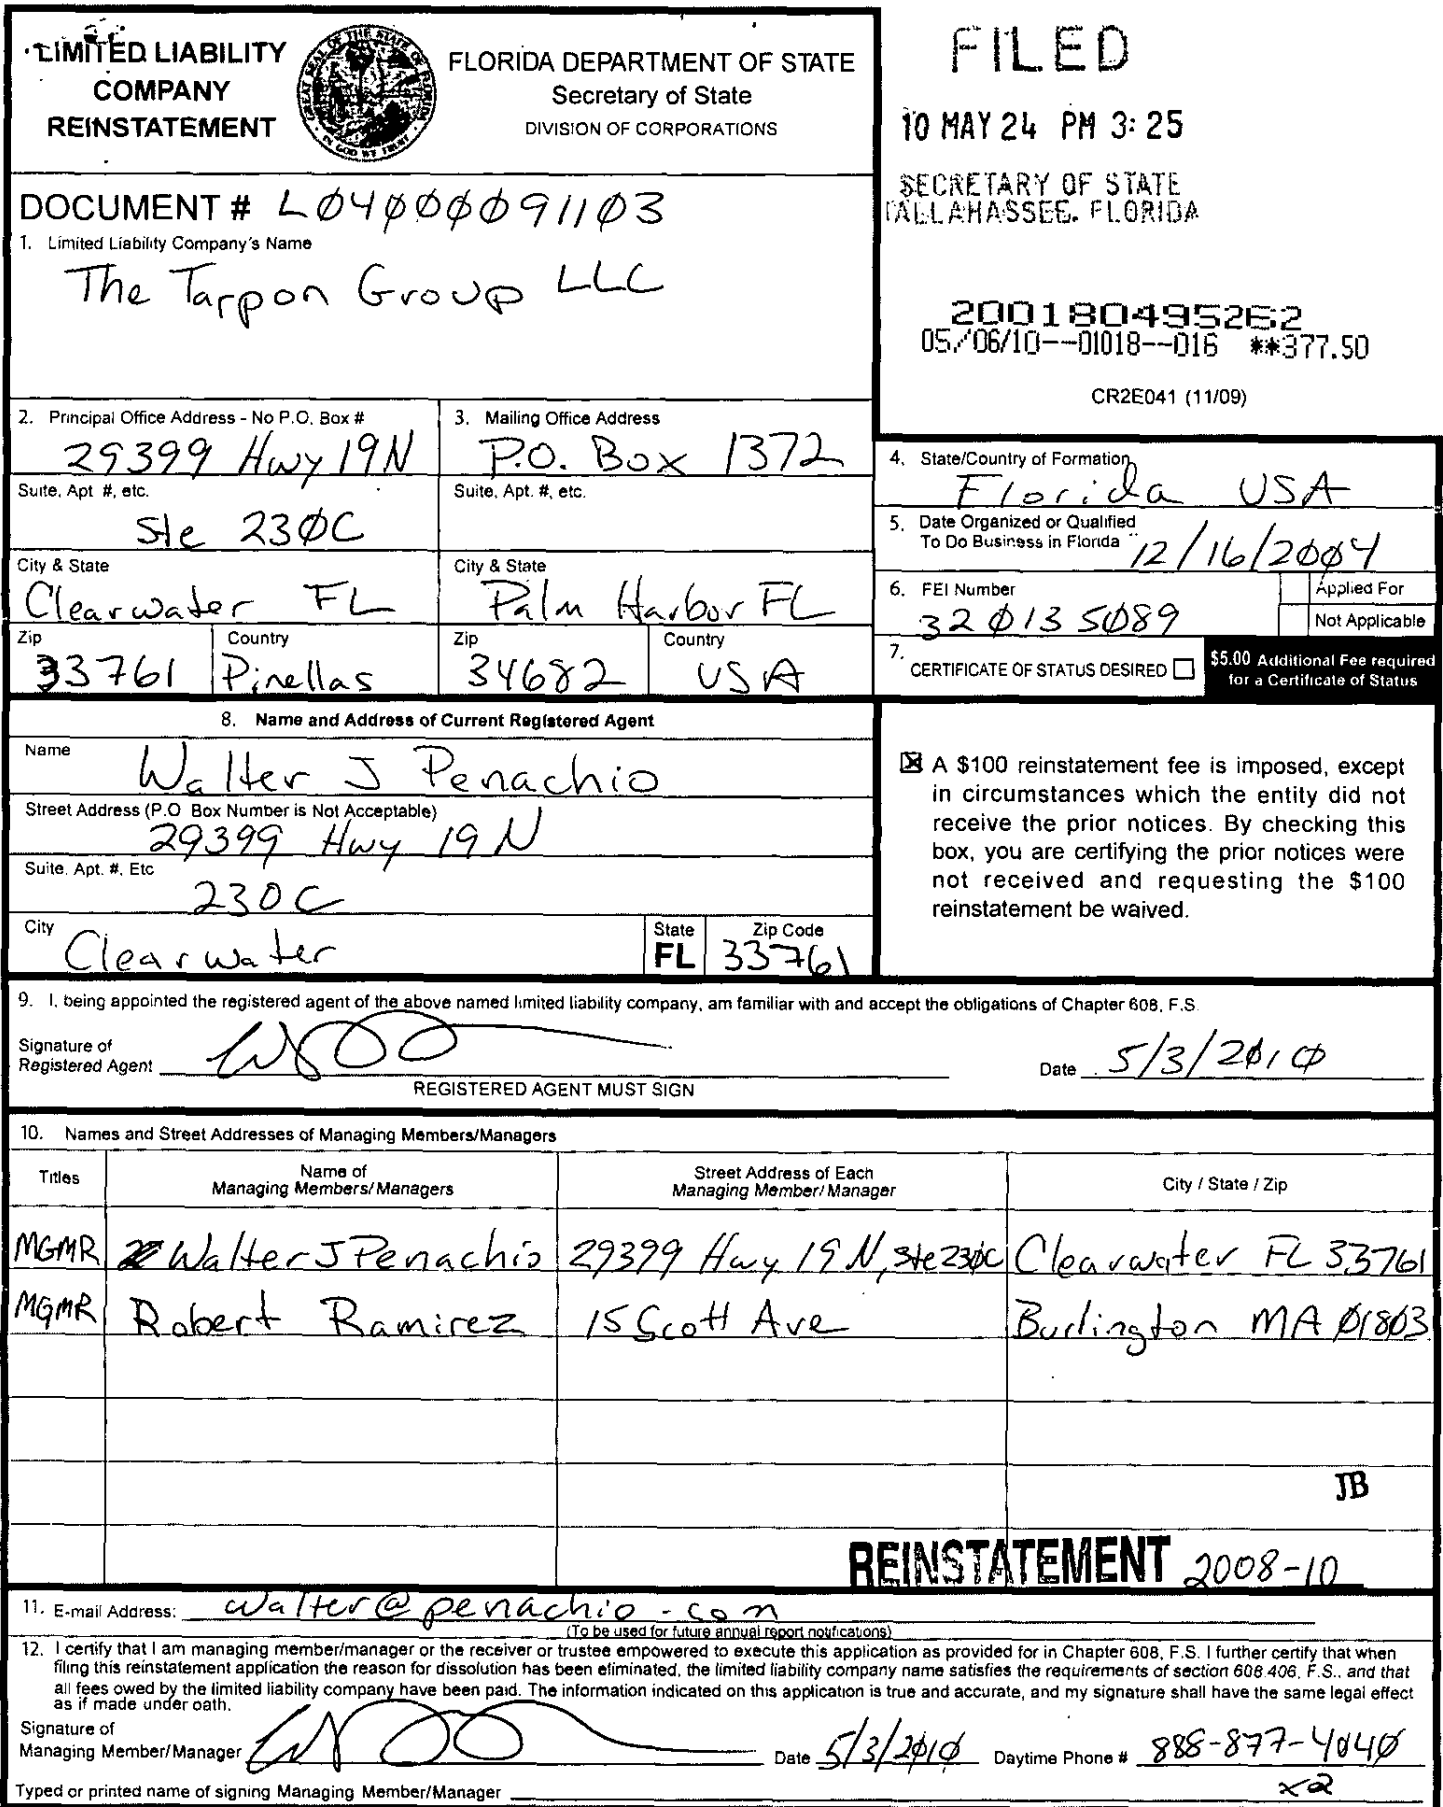 LIMITED LIABILITY
COMPANY
REINSTATEMENT
GREAT SEAL OF THE STATE OF FLORIDA
IN GOD WE TRUST
FLORIDA DEPARTMENT OF STATE
Secretary of State
DIVISION OF CORPORATIONS
FILED
10 MAY 24 PM 3:25
SECRETARY OF STATE
TALLAHASSEE, FLORIDA
DOCUMENT # L04000091103
1. Limited Liability Company's Name
The Tarpon Group LLC
200180495262
05/06/10--01018--016 **377.50
CR2E041 (11/09)
2. Principal Office Address - No P.O. Box #
29399 Hwy 19N
Suite, Apt #, etc.
Ste 230C
City & State
Clearwater FL
Zip
33761
Country
Pinellas
3. Mailing Office Address
P.O. Box 1372
Suite, Apt. #, etc.
City & State
Palm Harbor FL
Zip
34682
Country
USA
4. State/Country of Formation
Florida USA
5. Date Organized or Qualified
To Do Business in Florida
12/16/2004
6. FEI Number
320135089
Applied For
Not Applicable
7. CERTIFICATE OF STATUS DESIRED
$5.00 Additional Fee required
for a Certificate of Status
8. Name and Address of Current Registered Agent
Name
Walter J Penachio
Street Address (P.O Box Number is Not Acceptable)
29399 Hwy 19 N
Suite, Apt. #, Etc
230C
City
Clearwater
State
FL
Zip Code
33761
A $100 reinstatement fee is imposed, except
in circumstances which the entity did not
receive the prior notices. By checking this
box, you are certifying the prior notices were
not received and requesting the $100
reinstatement be waived.
9. I, being appointed the registered agent of the above named limited liability company, am familiar with and accept the obligations of Chapter 608, F.S.
Signature of
Registered Agent
REGISTERED AGENT MUST SIGN
Date 5/3/2010
10. Names and Street Addresses of Managing Members/Managers
Titles
Name of
Managing Members/Managers
Street Address of Each
Managing Member/Manager
City / State / Zip
MGMR Walter J Penachio 29399 Hwy 19 N, Ste 230C Clearwater FL 33761
MGMR Robert Ramirez 15 Scott Ave Burlington MA 01803
JB
REINSTATEMENT 2008-10
11. E-mail Address: walter@penachio.com
(To be used for future annual report notifications)
12. I certify that I am managing member/manager or the receiver or trustee empowered to execute this application as provided for in Chapter 608, F.S. I further certify that when
filing this reinstatement application the reason for dissolution has been eliminated, the limited liability company name satisfies the requirements of section 608.406, F.S., and that
all fees owed by the limited liability company have been paid. The information indicated on this application is true and accurate, and my signature shall have the same legal effect
as if made under oath.
Signature of
Managing Member/Manager
Date 5/3/2010
Daytime Phone # 888-877-4040
x2
Typed or printed name of signing Managing Member/Manager